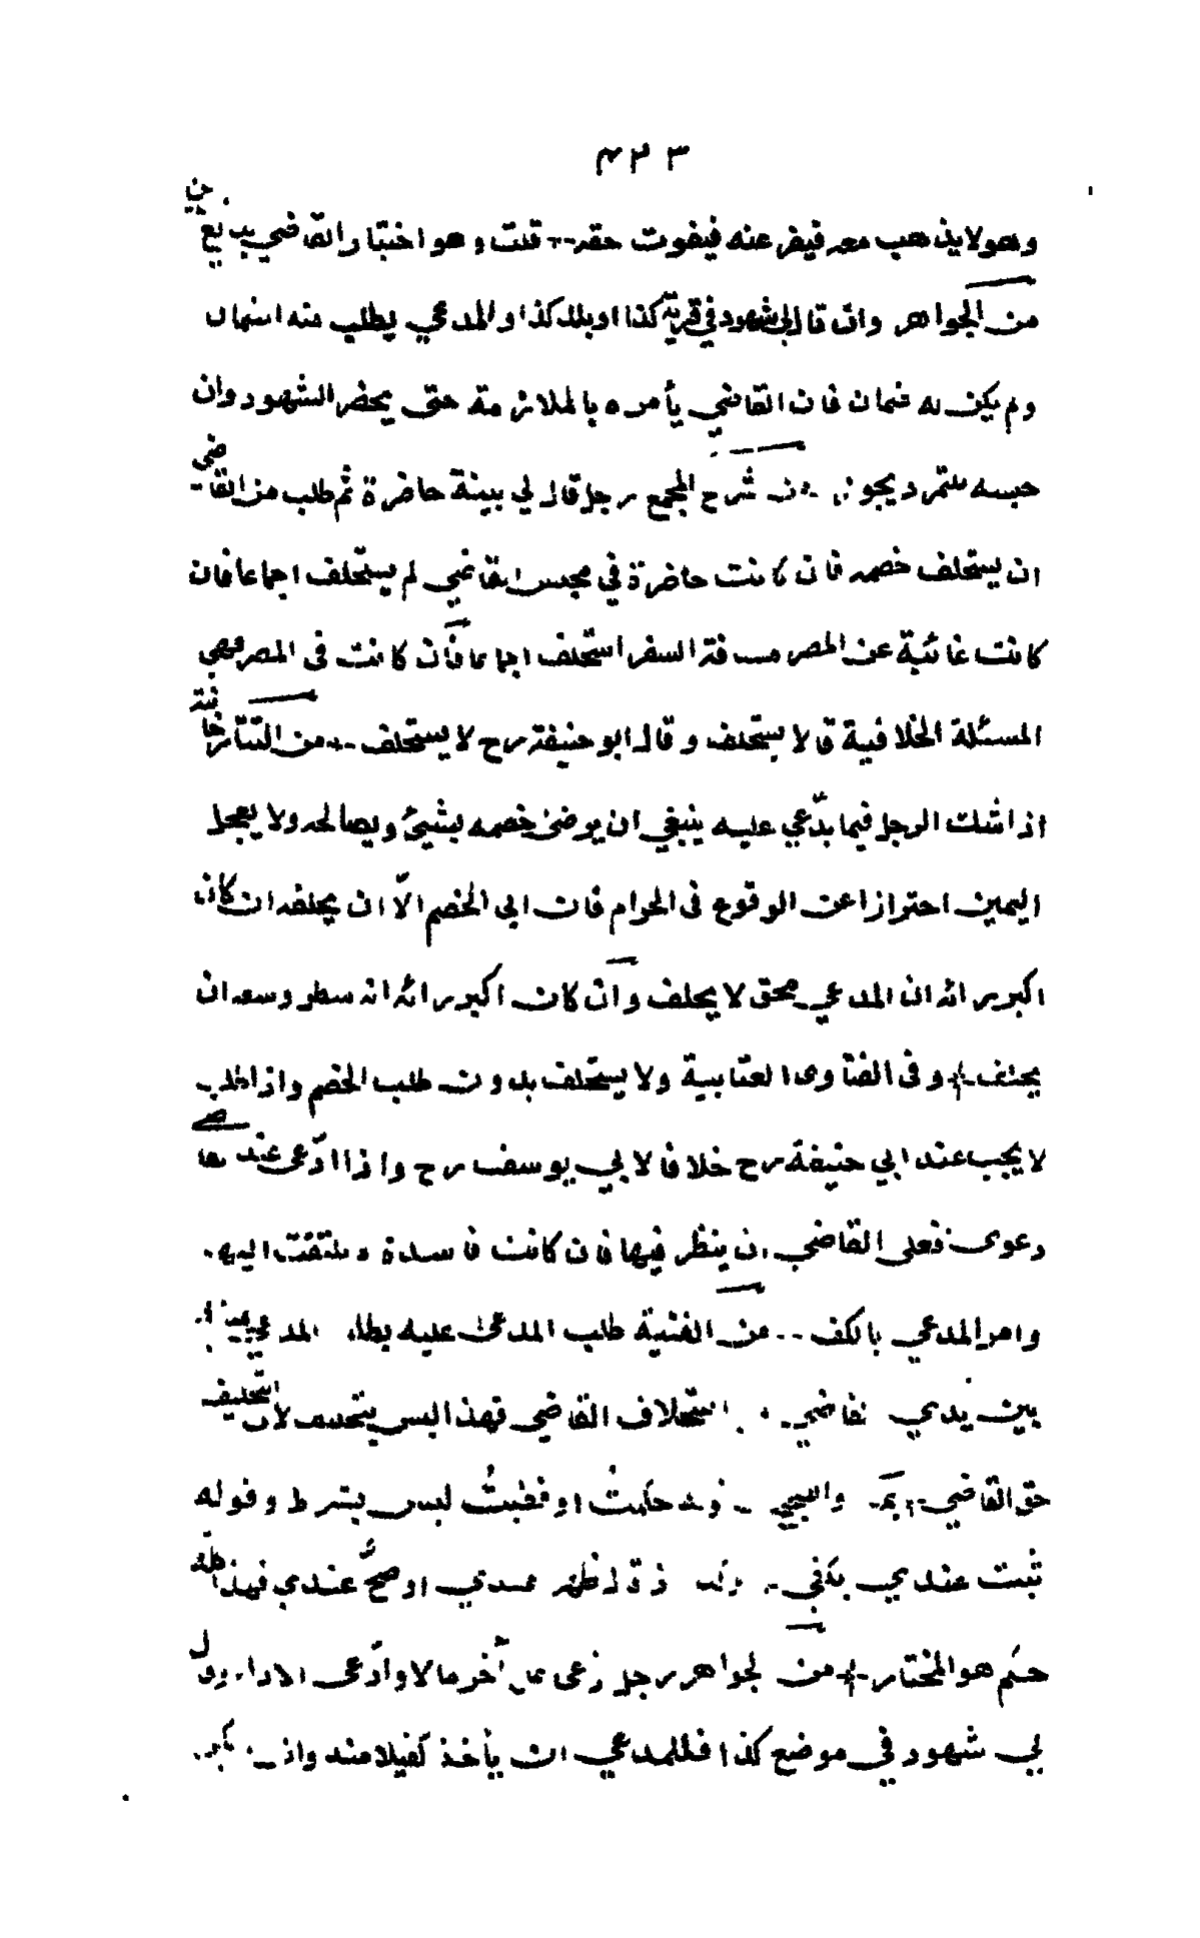 ٤٢٣
وهو لا يذهب معه فيفر عنه فيفوت حقه قلت وهو اختيار القاضي بديع
من الجواهر وان قال لي شهود في قرية كذا او بلد كذا والمدعي يطلب منه الضمان
ولم يكن له ضمان فان القاضي يأمره بالملازمة حتى يحضر الشهود وان
حبسه يجوز من شرح المجمع رجل قال لي بينة حاضرة ثم طلب من القاضي
ان يستحلف خصمه فان كانت حاضرة في مجلس القاضي لم يستحلف اجماعا فان
كانت غائبة عن المصر مسافة السفر استحلف اجماعا فان كانت فى المصر فهي
المسئلة الخلافية قالا يستحلف وقال ابو حنيفة رح لا يستحلف من التتارخانية
اذا شك الرجل فيما يدّعي عليه ينبغي ان يرضى خصمه بشيئ ويصالحه ولا يعجل
اليمين احترازا عن الوقوع فى الحرام فان ابى الخصم الاّ ان يحلفه ان كان
اكبر رائه ان المدعي محق لا يحلف وان كان اكبر رائه انه مبطل وسعه ان
يحلف وفى الفتاوى العتابية ولا يستحلف بدون طلب الخصم واذا طلب
لا يجب عند ابي حنيفة رح خلافا لابي يوسف رح واذا ادّعى عند
دعوى فعلى القاضي ان ينظر فيها فان كانت فاسدة لا يلتفت اليها
وامر المدعي بالكف من القنية طلب المدعى عليه المدعي
بين يدي القاضي استحلاف القاضي فهذا ليس بتحليف لان التحليف
حق القاضي حكمتُ او قضيتُ ليس بشرط وقوله
ثبت عندي يكفي ظهر عندي او صحَّ عندي فهذا كله
حكم هو المختار من الجواهر رجل ادعى على آخر مالا وادّعى الاداء وقال
لي شهود في موضع كذا فللمدعي ان يأخذ كفيلا منه وان لم يكن